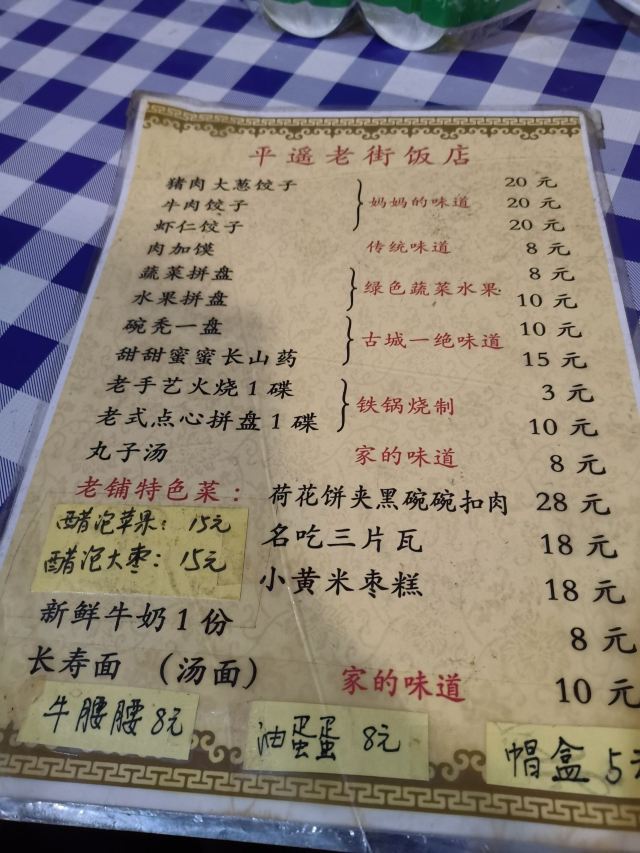 平遥老街饭店
猪肉大葱饺子 20 元
牛肉饺子 妈妈的味道 20 元
虾仁饺子 20 元
肉加馍 传统味道 8 元
蔬菜拼盘 8 元
绿色蔬菜水果
水果拼盘 10 元
碗秃一盘 10 元
古城一绝味道
甜甜蜜蜜长山药 15 元
老手艺火烧1碟 3 元
铁锅烧制
老式点心拼盘1碟 10 元
丸子汤 家的味道 8 元
老铺特色菜： 荷花饼夹黑碗碗扣肉 28 元
醋泡苹果：15元
名吃三片瓦 18 元
醋泡大枣：15元
小黄米枣糕 18 元
新鲜牛奶1份 8 元
长寿面 （汤面） 家的味道 10 元
牛腰腰 8元
油蛋蛋 8元
帽盒 5元